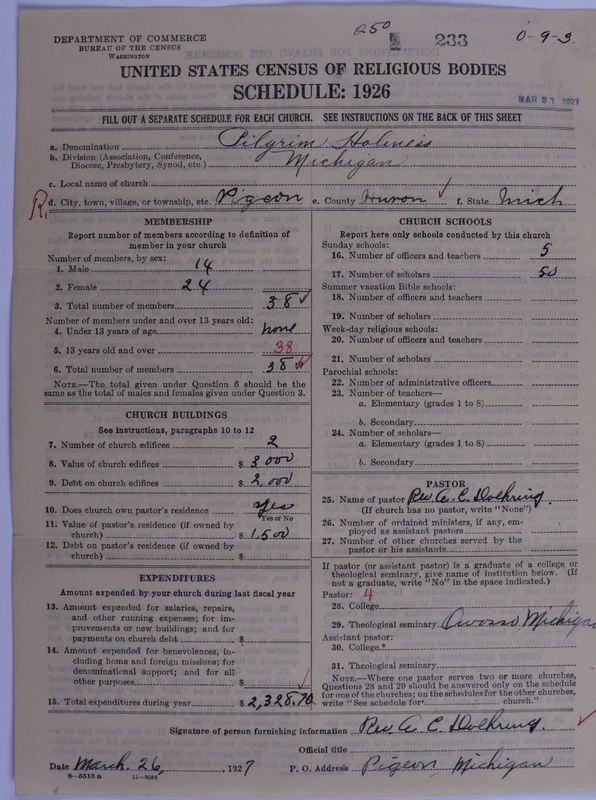 250
233
0-9-3
DEPARTMENT OF COMMERCE
BUREAU OF THE CENSUS
WASHINGTON
UNITED STATES CENSUS OF RELIGIOUS BODIES
SCHEDULE: 1926
MAR 31 1927
FILL OUT A SEPARATE SCHEDULE FOR EACH CHURCH. SEE INSTRUCTIONS ON THE BACK OF THIS SHEET
a. Denomination Pilgrim Holiness
b. Division (Association, Conference, Diocese, Presbytery, Synod, etc.) Michigan
c. Local name of church
R. d. City, town, village, or township, etc. Pigeon e. County Huron f. State Mich
MEMBERSHIP
Report number of members according to definition of
member in your church
Number of members, by sex:
1. Male 14
2. Female 24
3. Total number of members 38
Number of members under and over 13 years old:
4. Under 13 years of age none
5. 13 years old and over 38
6. Total number of members 38
NOTE.—The total given under Question 6 should be the
same as the total of males and females given under Question 3.
CHURCH BUILDINGS
See instructions, paragraphs 10 to 12
7. Number of church edifices 2
8. Value of church edifices $ 3000
9. Debt on church edifices $ 2,000
10. Does church own pastor's residence yes
Yes or No
11. Value of pastor's residence (if owned by
church) $ 1500
12. Debt on pastor's residence (if owned by
church) $
EXPENDITURES
Amount expended by your church during last fiscal year
13. Amount expended for salaries, repairs,
and other running expenses; for im-
provements or new buildings; and for
payments on church debt $
14. Amount expended for benevolences, in-
cluding home and foreign missions; for
denominational support; and for all
other purposes $
15. Total expenditures during year $ 2,328.70
CHURCH SCHOOLS
Report here only schools conducted by this church
Sunday schools:
16. Number of officers and teachers 5
17. Number of scholars 50
Summer vacation Bible schools:
18. Number of officers and teachers
19. Number of scholars
Week-day religious schools:
20. Number of officers and teachers
21. Number of scholars
Parochial schools:
22. Number of administrative officers
23. Number of teachers—
a. Elementary (grades 1 to 8)
b. Secondary
24. Number of scholars—
a. Elementary (grades 1 to 8)
b. Secondary
PASTOR
25. Name of pastor Rev. A. C. Doehring
(If church has no pastor, write "None")
26. Number of ordained ministers, if any, em-
ployed as assistant pastors
27. Number of other churches served by the
pastor or his assistants
If pastor (or assistant pastor) is a graduate of a college or
theological seminary, give name of institution below. (If
not a graduate, write "No" in the space indicated.)
Pastor: 4
28. College
29. Theological seminary Owosso Michigan
Assistant pastor:
30. College
31. Theological seminary
NOTE.—Where one pastor serves two or more churches,
Questions 28 and 29 should be answered only on the schedule
for one of the churches; on the schedules for the other churches,
write "See schedule for church."
Signature of person furnishing information Rev. A. C. Doehring.
Official title
Date March. 26, 1927 P. O. Address Pigeon Michigan
8—5518 a 11—9034